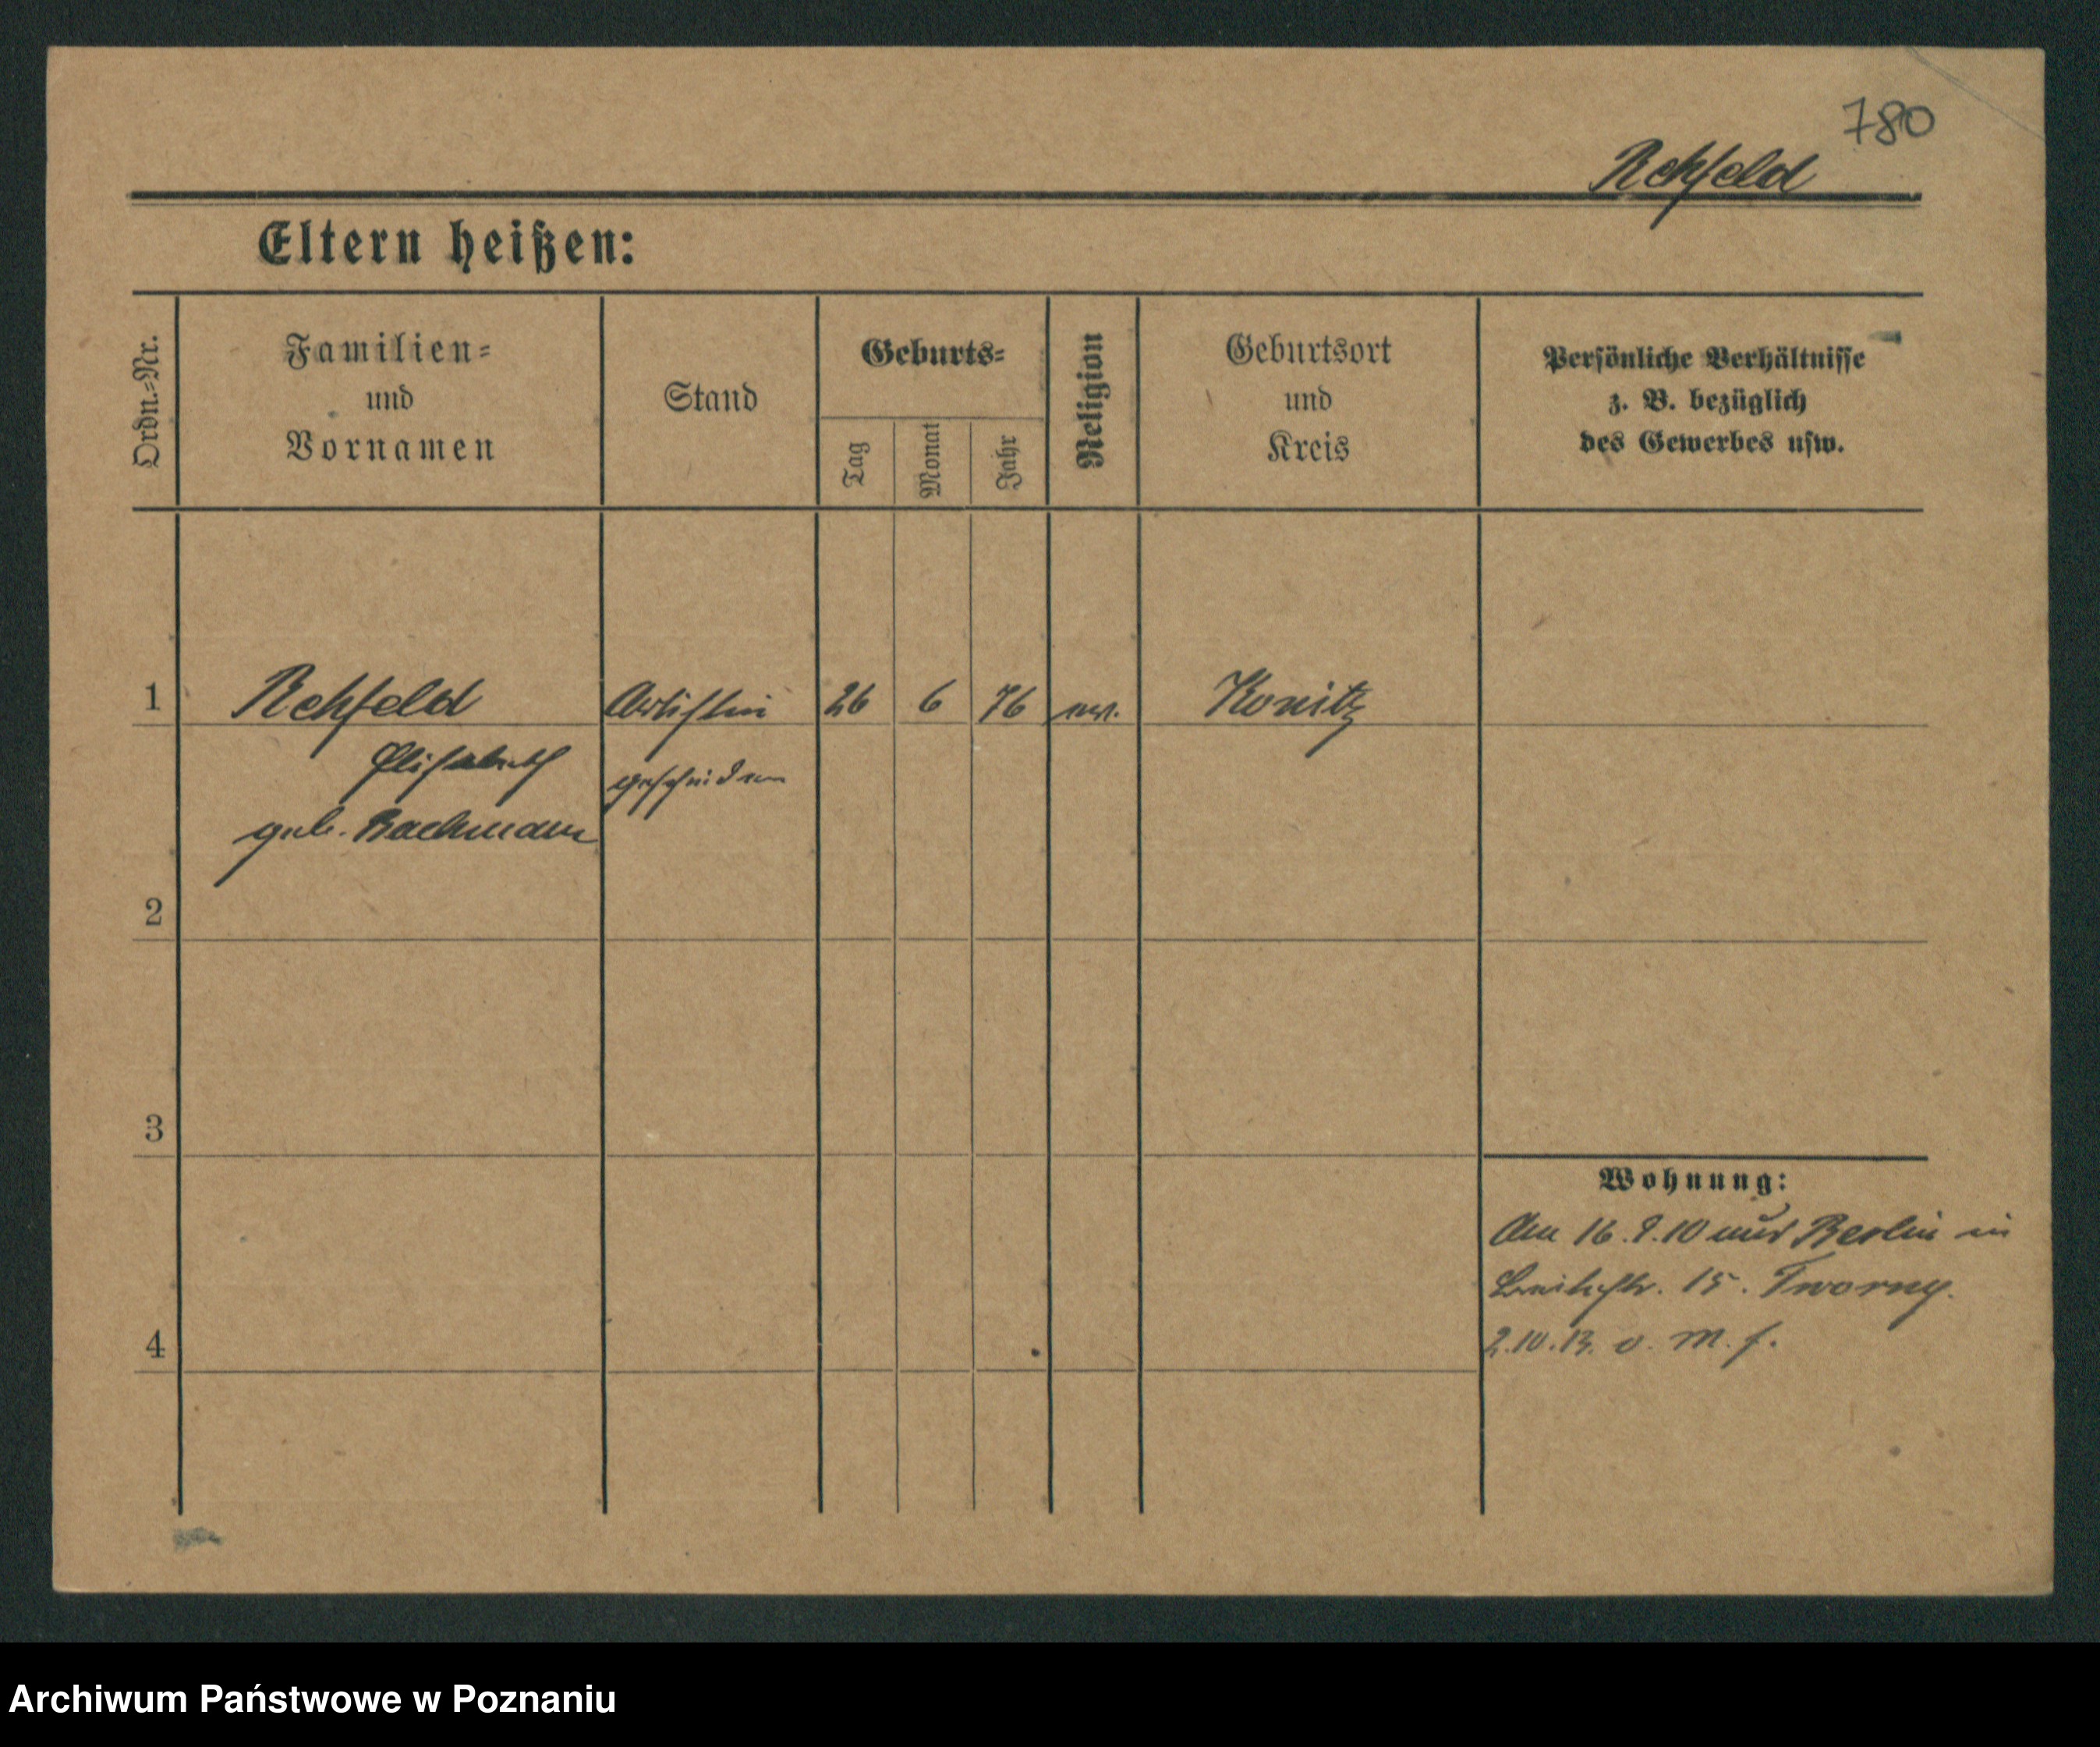 780
Rehfeld
Eltern heißen:
Ordn.=Nr.
Familien=
und
Vornamen
Stand
Geburts=
Tag
Monat
Jahr
Religion
Geburtsort
und
Kreis
Persönliche Verhältnisse
z. B. bezüglich
des Gewerbes usw.
1 Rehfeld Artistin 26 6 76 ev. Konitz
Elisabeth geschieden
geb. Bachmann
2
3
Wohnung:
Am 16. 9. 10 aus Berlin in
15. Tworny.
2.10.13. o. M. f.
4
Archiwum Państwowe w Poznaniu